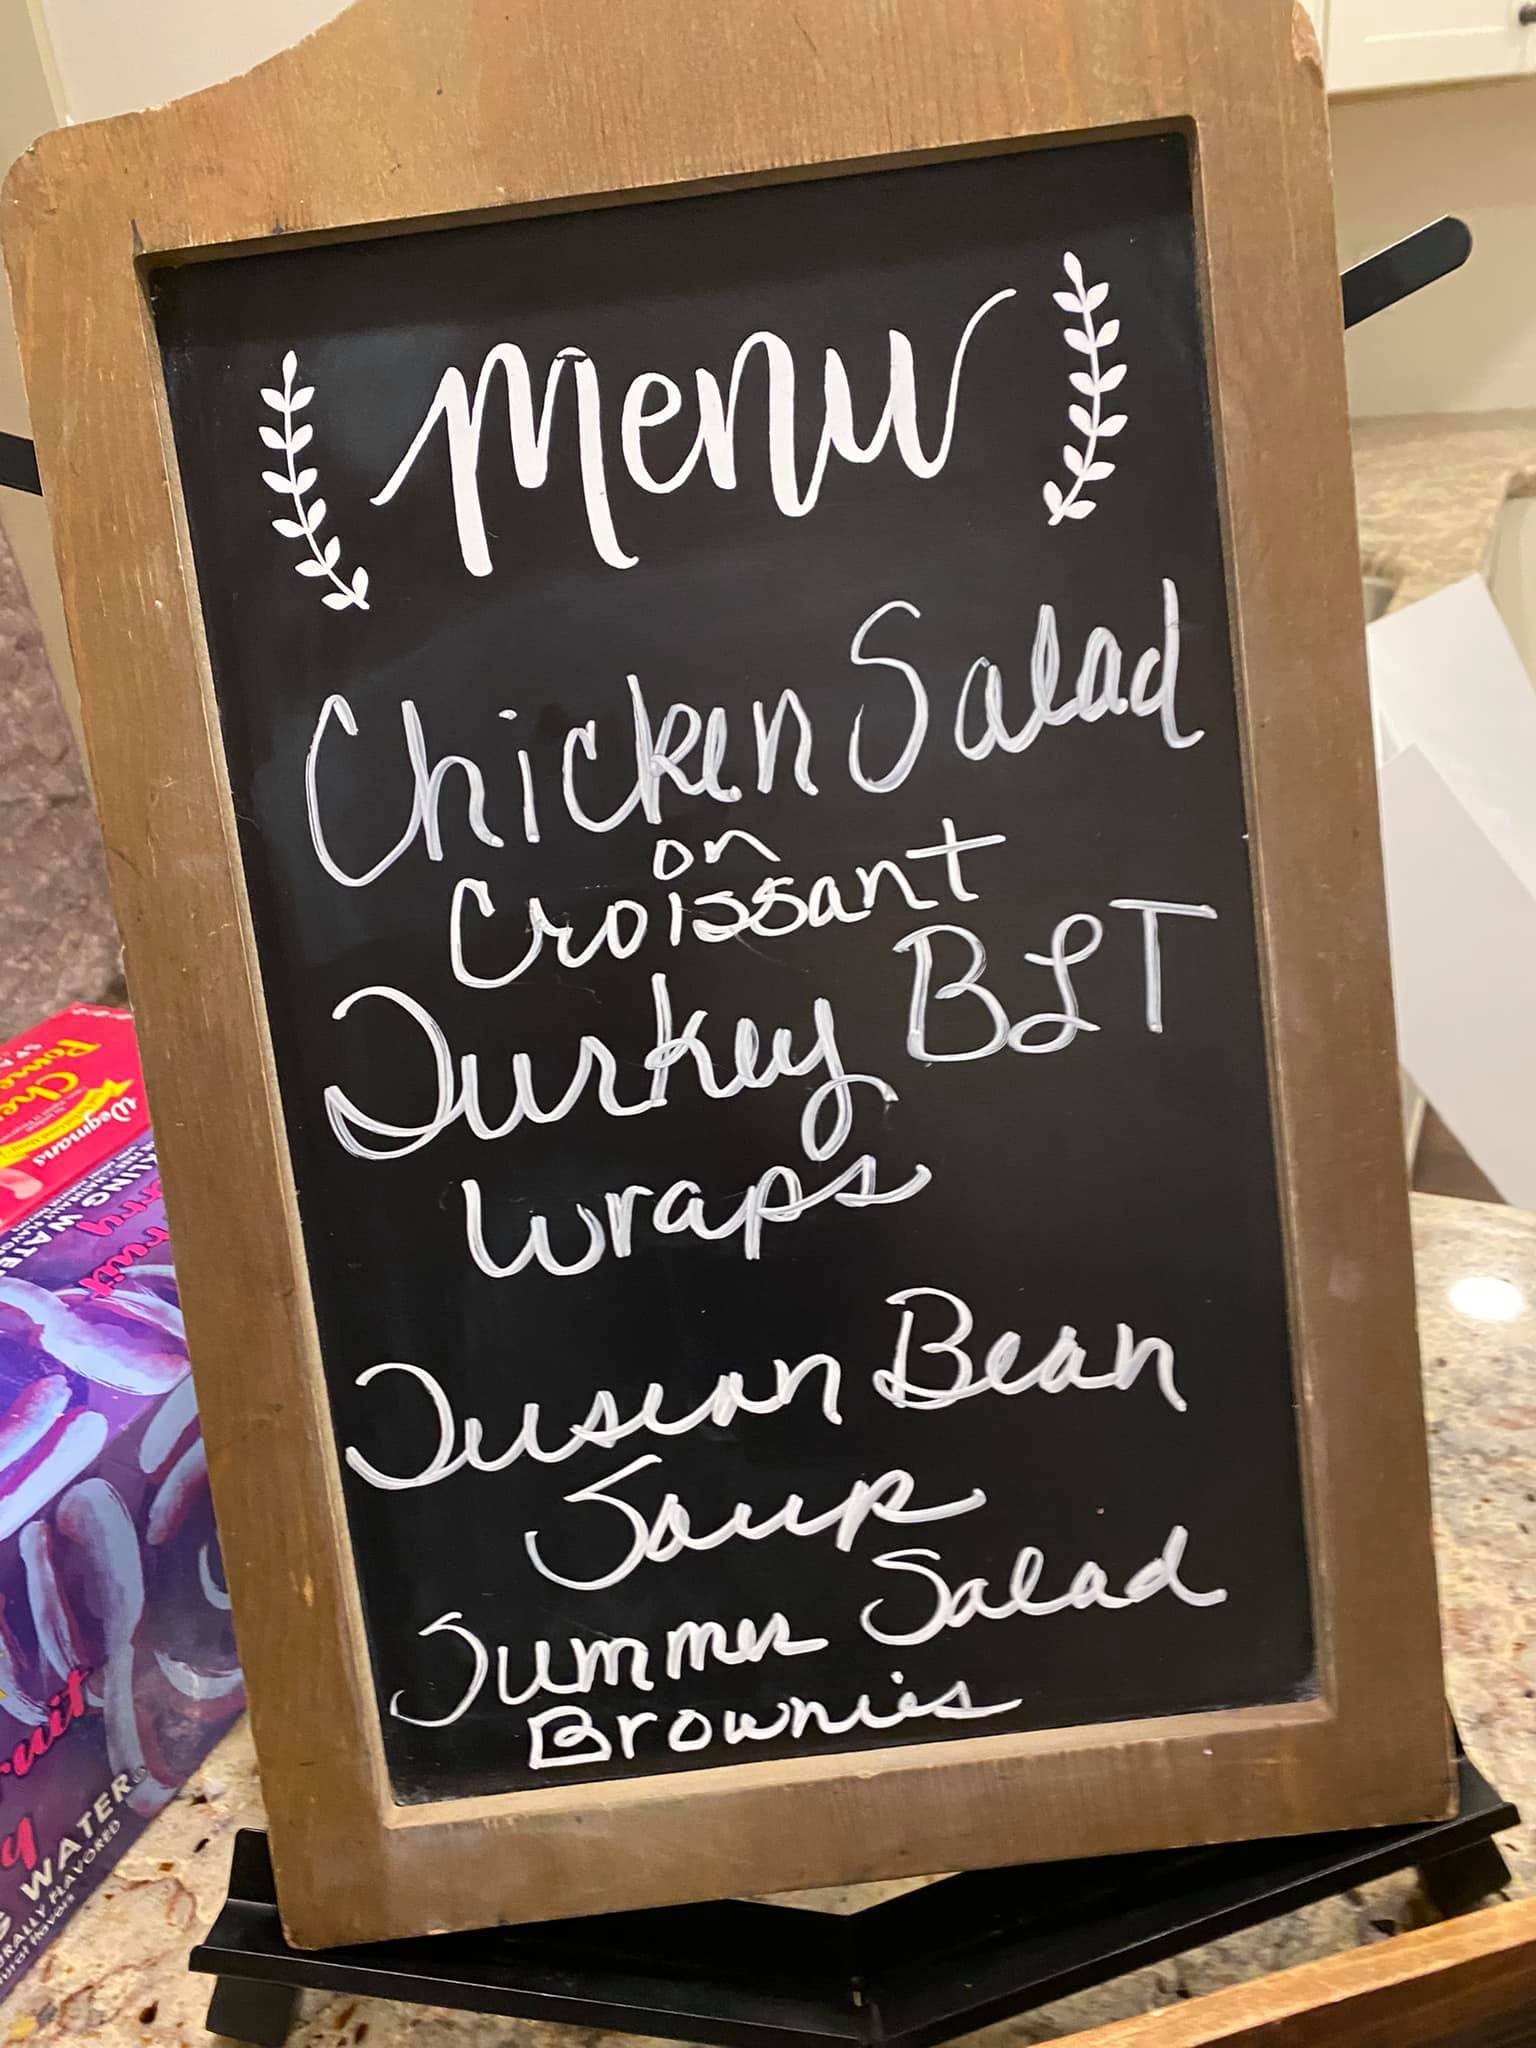 menu
Chicken Salad
on
Croissant
Turkey BLT
Wraps
Tuscan Bean
Soup
Summer Salad
Brownies
Wegmans
WATER